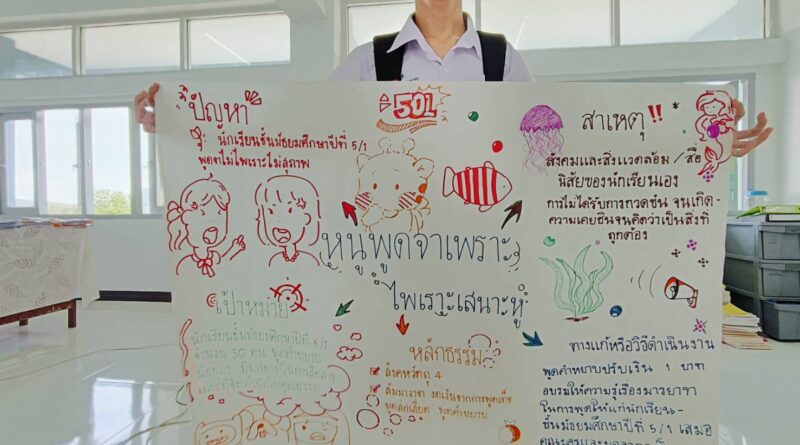 ปัญหา
นักเรียนชั้นมัธยมศึกษาปีที่ 5/1
พูดจาไม่ไพเราะไม่สุภาพ
501
สาเหตุ !!
สังคมและสิ่งแวดล้อม / สื่อ
นิสัยของนักเรียนเอง
การไม่ได้รับการกวดขัน จนเกิด-
ความเคยชินจนคิดว่าเป็นสิ่งที่
ถูกต้อง
หนูพูดจาเพราะ
ไพเราะเสนาะหู
เป้าหมาย
นักเรียนชั้นมัธยมศึกษาปีที่ 5/1
จำนวน 30 คน พูดคำหยาบ
หลักธรรม
สังคหวัตถุ 4
สัมมาวาจา งดเว้นจากการพูดเท็จ
พูดส่อเสียด พูดคำหยาบ
ทางแก้หรือวิธีดำเนินงาน
พูดคำหยาบปรับเงิน 1 บาท
อบรมให้ความรู้เรื่องมารยาท
ในการพูดให้แก่นักเรียน-
ชั้นมัธยมศึกษาปีที่ 5/1 เสมอ